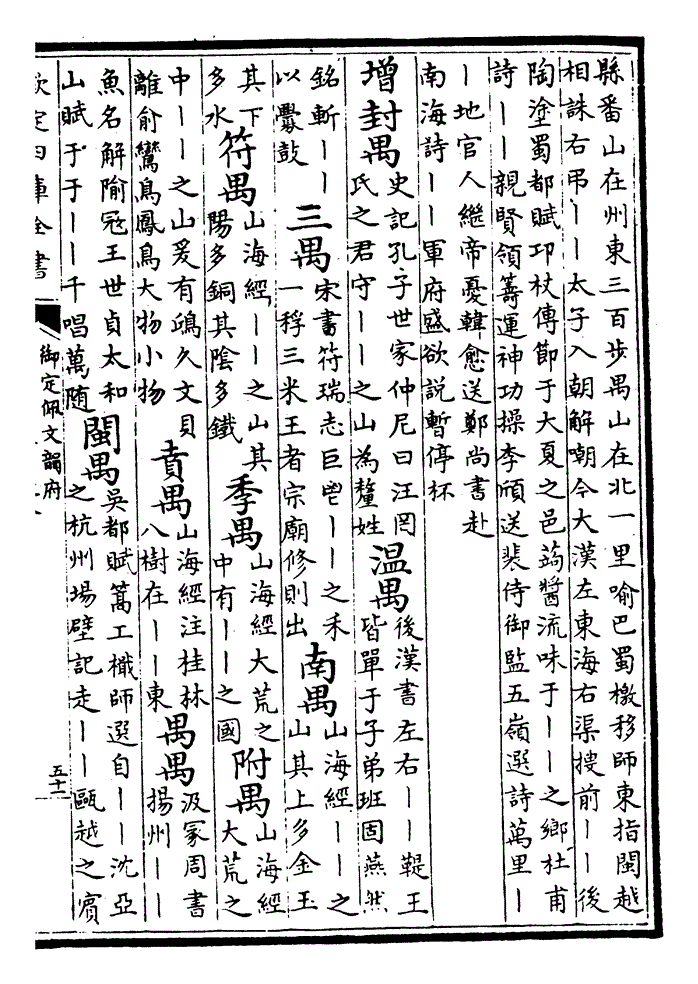 縣番山在州東三百步禺山在北一里喻巴蜀檄移師東指閩越
相誅右弔——太子入朝解嘲今大漢左東海右渠搜前——後
陶塗蜀都賦邛杖傳節于大夏之邑蒟醬流味于——之鄉杜甫
詩——親賢領籌運神功操李頎送裴侍御監五嶺選詩萬里—
—地官人繼帝憂韓愈送鄭尚書赴
南海詩——軍府盛欲說暫停杯
增封禺
史記孔子世家仲尼曰汪罔
氏之君守——之山為釐姓
温禺
後漢書左右——鞮王
皆單于子弟班固燕然
銘斬——
以釁鼓
三禺
宋書符瑞志巨鬯——之禾
一稃三米王者宗廟修則出
南禺
山海經——之
山其上多金玉
其下
多水
符禺
山海經——之山其
陽多銅其陰多鐵
季禺
山海經大荒之
中有——之國
附禺
山海經
大荒之
中——之山爰有鴟久文貝
離俞鸞鳥鳳鳥大物小物
賁禺
山海經注桂林
八樹在——東
禺禺
汲冢周書
揚州——
魚名解隃冠王世貞太和
山賦于于——千唱萬隨
閩禺
吳都賦篙工檝師選自——沈亞
之杭州場壁記走——甌越之賓
欽定四庫全書
御定佩文韻府